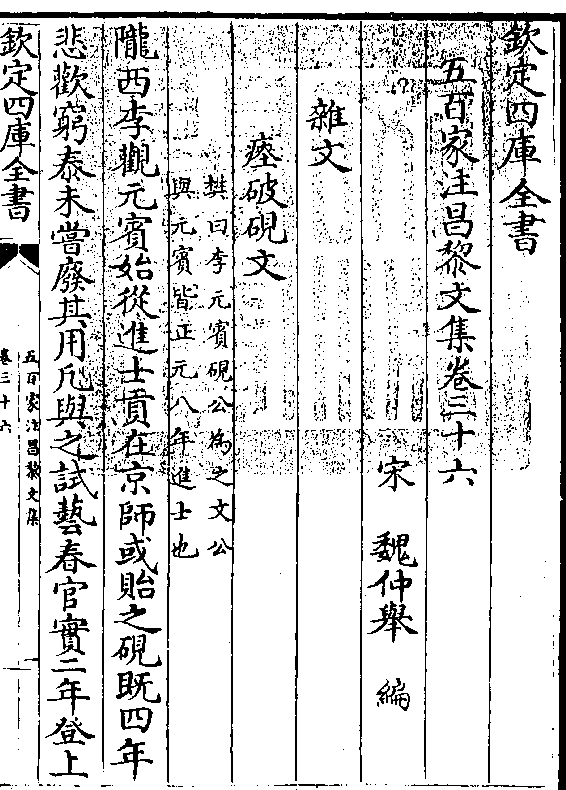 欽定四庫全書
五百家注昌黎文集卷三十六
宋 魏仲舉 編
雜文
瘞破硯文
樊曰李元賓硯公為之文公
與元賓皆正元八年進士也
隴西李觀元賓始從進士貢在京師或貽之硯既四年
悲歡窮泰未嘗廢其用凡與之試藝春官實二年登上
欽定四庫全書
五百家注昌黎文集
卷三十六
一